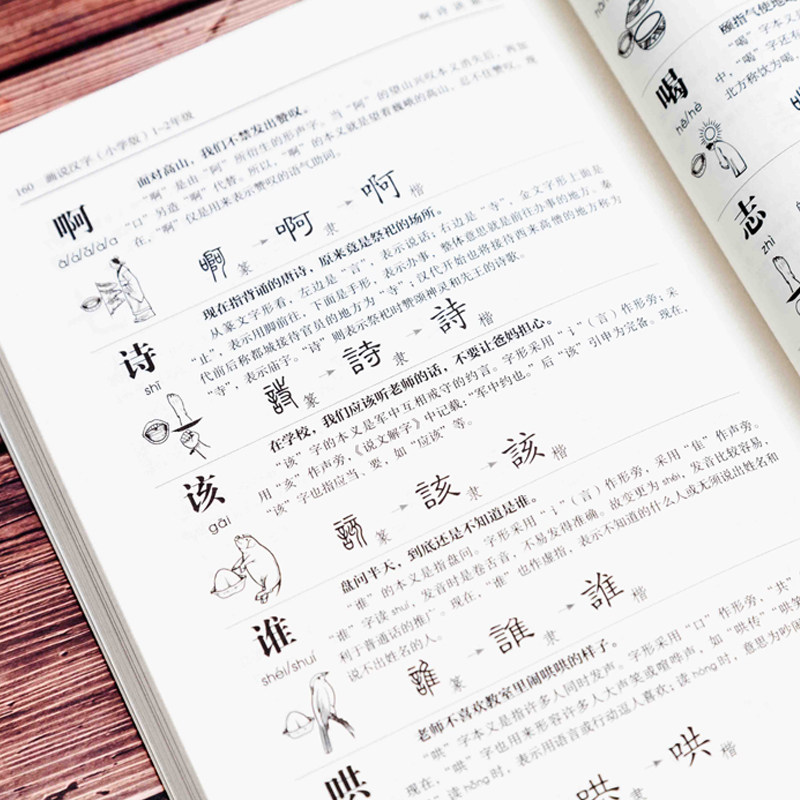 160 画说汉字(小学版)1~2年级
啊
ā/á/ǎ/à/a
面对高山,我们不禁发出赞叹。
“啊”是由“阿”所衍生的形声字。当“阿”的望山兴叹本义消失后,再加
“口”另造“啊”代替。所以,“啊”的本义就是望着巍峨的高山,忍不住赞叹。现
在,“啊”仅是用来表示赞叹的语气助词。
啊 篆 → 啊 隶 → 啊 楷
诗
shī
现在指背诵的唐诗,原来竟是祭祀的场所。
从篆文字形看,左边是“言”,表示说话;右边是“寺”,金文字形上面是
“止”,表示用脚前往,下面是手形,表示办事,整体意思就是前往办事的地方。秦
代前后称都城接待官员的地方为“寺”;汉代开始也将接待西来高僧的地方称为
“寺”,表示庙宇。“诗”则表示祭祀时赞颂神灵和先王的诗歌。
詩 篆 → 詩 隶 → 詩 楷
该
gāi
在学校,我们应该听老师的话,不要让爸妈担心。
“该”字的本义是军中互相戒守的约言。字形采用“讠”(言)作形旁;采
用“亥”作声旁。《说文解字》中记载:“军中约也。”后“该”引申为完备。现在,
“该”字也指应当、要,如“应该”等。
該 篆 → 該 隶 → 該 楷
谁
shéi/shuí
盘问半天,到底还是不知道是谁。
“谁”的本义是指盘问。字形采用“讠”(言)作形旁,采用“隹”作声旁。
“谁”字读 shuí,发音时是卷舌音,不易发得准确。故变更为 shéi,发音比较容易,
利于普通话的推广。现在,“谁”也作虚指,表示不知道的什么人或无须说出姓名和
说不出姓名的人。
誰 篆 → 誰 隶 → 誰 楷
哄
老师不喜欢教室里闹哄哄的样子。
“哄”字本义是指许多人同时发声。字形采用“口”作形旁,“共”
现在,“哄”字也用来形容许多人大声笑或喧哗声,如“哄传”“哄笑
”读 hǒng 时,表示用语言或行动逗人喜欢;读 hòng 时,意思为吵闹
哄 隶 → 哄 楷
颐指气使地
“喝”字本义
中,“喝”字还有
北方称饮为喝,
喝
hē/hè
志
zhì